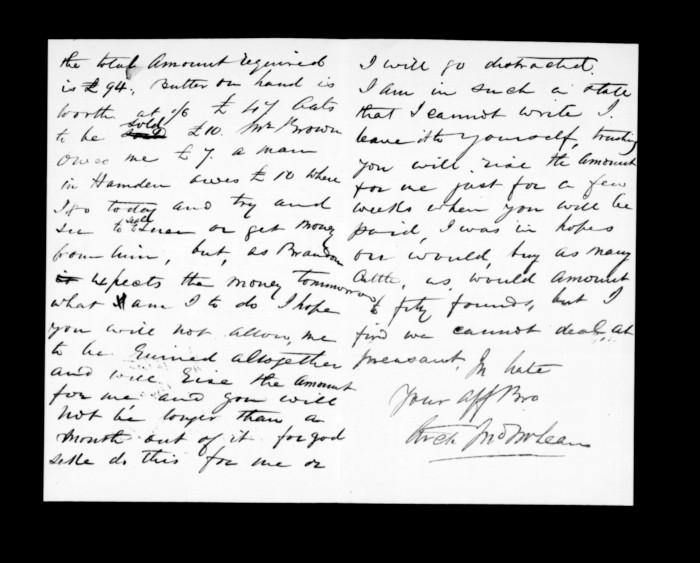 the total amount required
is £94, Butter on hand is
worth at /6 £47 Oats
to be sold £10. Mr Brown
owes me £7. a man
in Hamden owes £10 where
I go today and try and
see to or get money
from him, but, as Brandon
expects the money tommorrow
what am I to do I hope
you will not allow, me
to be Ruined altogether
and will Rise the amount
for me and you will
not be longer than a
month out of it for god
sake do this for me or
I will go distracted.
I am in such a state
that I cannot write I.
leave it to yourself, trusting
you will Rise the amount
for me just for a few
weeks when you will be
paid, I was in hopes
ou would, buy as many
Cattle, as, would amount
to fity founds, but I
find we cannot deal, at
preasant, In hate
Your aff Bro
Arch Jno McLean